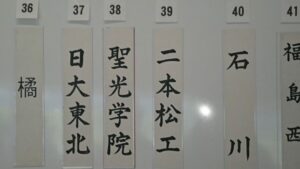 36
37
38
39
40
41
橘
日大東北
聖光学院
二本松工
石川
福島西